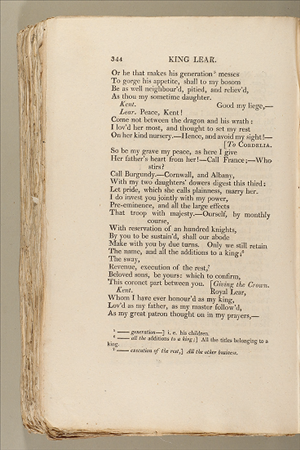 344 KING LEAR.
Or he that makes his generation⁴ messes
To gorge his appetite, shall to my bosom
Be as well neighbour'd, pitied, and reliev'd,
As thou my sometime daughter.
Kent. Good my liege,—
Lear. Peace, Kent!
Come not between the dragon and his wrath:
I lov'd her most, and thought to set my rest
On her kind nursery.—Hence, and avoid my sight!—
[To CORDELIA.
So be my grave my peace, as here I give
Her father's heart from her!—Call France;—Who
stirs?
Call Burgundy.—Cornwall, and Albany,
With my two daughters' dowers digest this third:
Let pride, which she calls plainness, marry her.
I do invest you jointly with my power,
Pre-eminence, and all the large effects
That troop with majesty.—Ourself, by monthly
course,
With reservation of an hundred knights,
By you to be sustain'd, shall our abode
Make with you by due turns. Only we still retain
The name, and all the additions to a king;⁶
The sway,
Revenue, execution of the rest,⁷
Beloved sons, be yours: which to confirm,
This coronet part between you. [Giving the Crown.
Kent. Royal Lear,
Whom I have ever honour'd as my king,
Lov'd as my father, as my master follow'd,
As my great patron thought on in my prayers,—
—— generation—] i. e. his children.
—— all the additions to a king;] All the titles belonging to a
king.
—— execution of the rest,] All the other business.